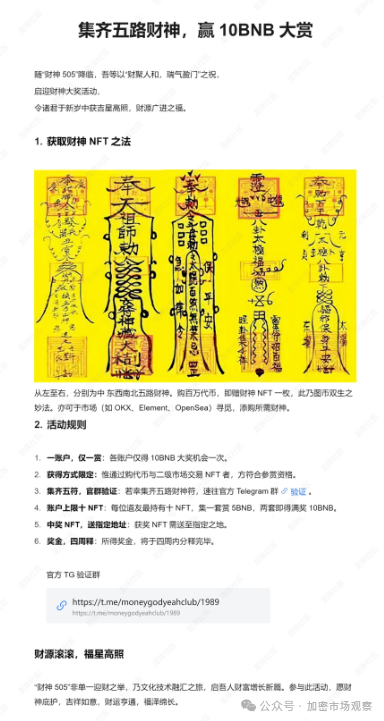 集齐五路财神，赢 10BNB 大赏
随“财神 505”降临，吾等以“财聚人和，瑞气盈门”之祝，
启迎财神大奖活动，
令诸君于新岁中获吉星高照，财源广进之福。
1. 获取财神 NFT 之法
奉 天 祖 師 勅
奉 勅 令
保 平 安
急 如 律 令
从左至右，分别为中 东西南北五路财神。购百万代币，即赠财神 NFT 一枚，此乃图币双生之
妙法。亦可于市场（如 OKX、Element、OpenSea）寻觅，添购所需财神。
2. 活动规则
1. 一账户，仅一赏：各账户仅得 10BNB 大奖机会一次。
2. 获得方式限定：惟通过购代币与二级市场交易 NFT 者，方符合参赏资格。
3. 集齐五符，官群验证：若幸集齐五路财神符，速往官方 Telegram 群 验证 。
4. 账户上限十 NFT：每位道友最持有十 NFT，集一套赏 5BNB，两套即得满奖 10BNB。
5. 中奖 NFT，送指定地址：获奖 NFT 需送至指定之地。
6. 奖金，四周释：所得奖金，将于四周内分释完毕。
官方 TG 验证群
https://t.me/moneygodyeahclub/1989
https://t.me/moneygodyeahclub/1989
财源滚滚，福星高照
“财神 505”非单一迎财之举，乃文化技术融汇之旅，启吾人财富增长新篇。参与此活动，愿财
神庇护，吉祥如意，财运亨通，福泽绵长。
公众号 · 加密市场观察